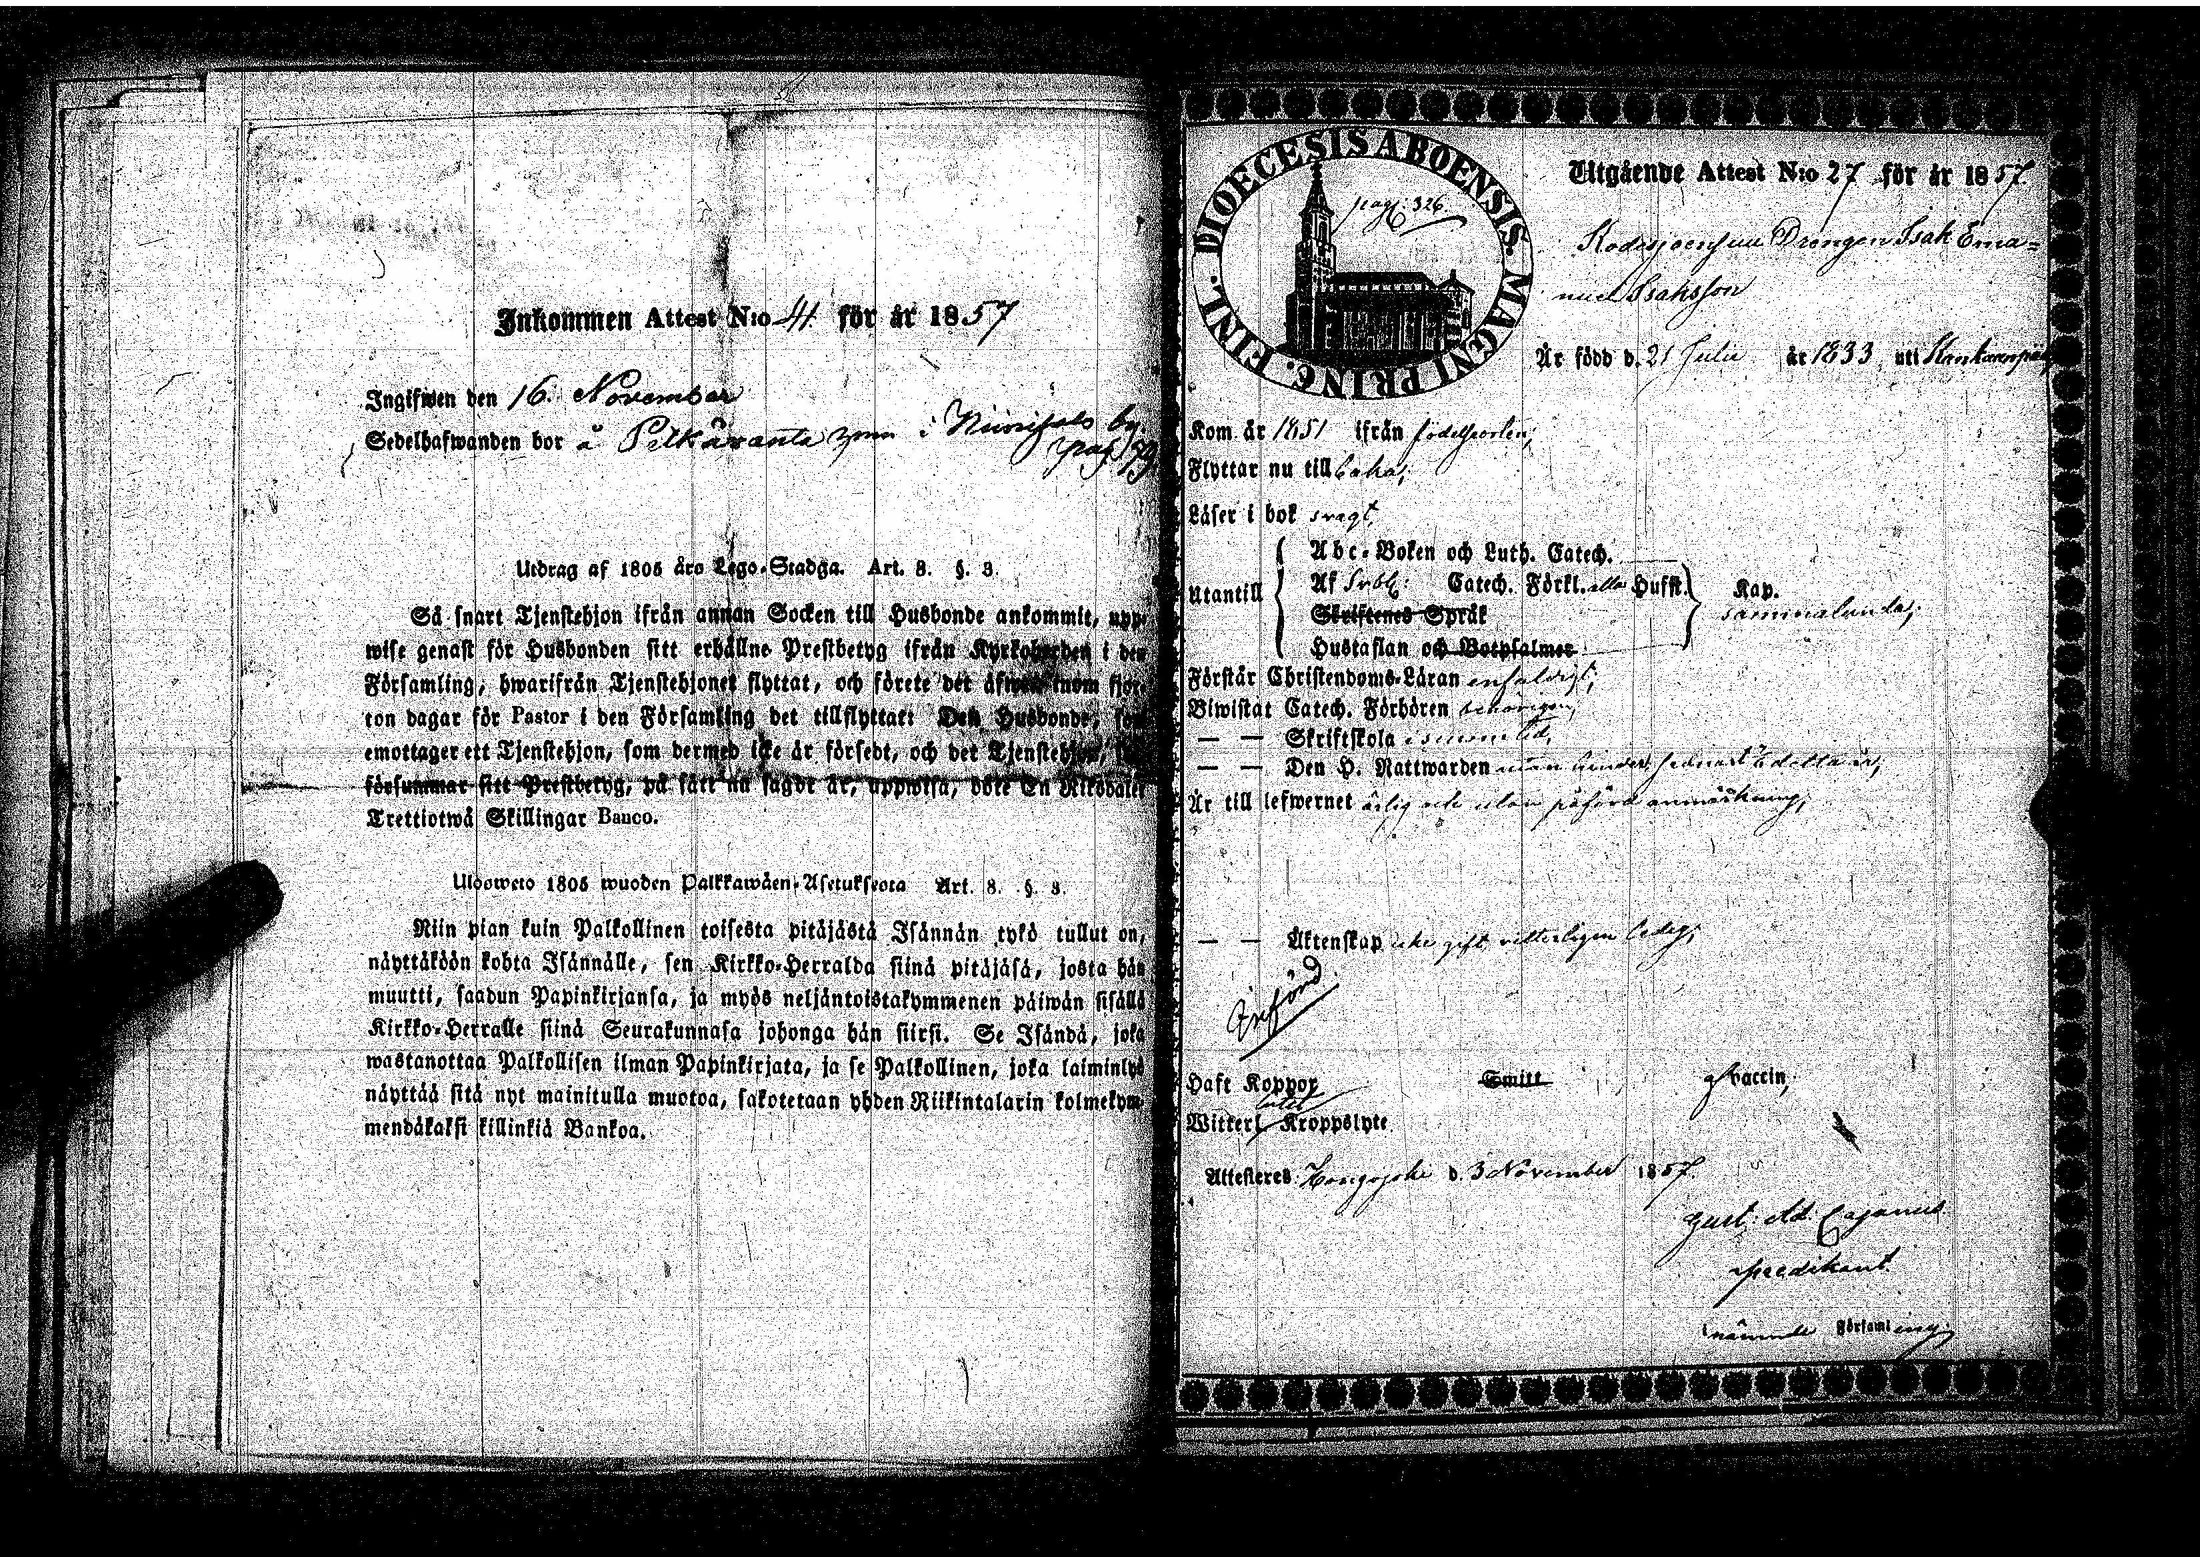 Inkommen Attest N:o 41 för år 1857
Ingifwen den 16. November
Sedelhafwanden bor å Pitkäranta i by.
pag. 79
Utdrag af 1805 års Lego-Stadga. Art. 8. §. 3.
Så snart Tjenstehjon ifrån annan Socken till Husbonde ankommit, upp-
wise genast för Husbonden sitt erhållne Prestbetyg ifrån Kyrkoherden i den
Församling, hwarifrån Tjenstehjonet flyttat, och förete det äfwen inom fjor-
ton dagar för Pastor i den Församling det tillflyttat: Den Husbonde, som
emottager ett Tjenstehjon, som dermed icke är försedt, och det Tjenstehjon,
försummar sitt Prestbetyg, på sätt nu sagdt är, uppwisa, böte En Riksdaler
Trettiotwå Skillingar Banco.
Ulosweto 1805 wuoden Palkkawäen-Asetuksesta Art. 8. §. 3.
Niin pian kuin Palkollinen toisesta pitäjästä Isännän tykö tullut on,
näyttäköön kohta Isännälle, sen Kirkko-Herralda siinä pitäjäsä, josta hän
muutti, saadun Papinkirjansa, ja myös neljäntoistakymmenen päiwän sisällä
Kirkko-Herralle siinä Seurakunnasa johonga hän siirsi. Se Isändä, joka
wastanottaa Palkollisen ilman Papinkirjata, ja se Palkollinen, joka laiminlyö
näyttää sitä nyt mainitulla muotoa, sakotetaan yhden Riikintalarin kolmekym-
mendäkaksi killinkiä Bankoa.
DIOECESIS ABOENSIS. MAGNI PRINC. FINL.
pag: 326
Utgående Attest N:o 27 för år 1857.
Drengen Isak Ema=
nuel Isaksson
Är född d. 21 Julii år 1833 uti Kankaanpää
Kom år 1851 ifrån födelseorten;
Flyttar nu till
Läser i bok svagt,
Utantill
Abc-Boken och Luth. Catech.
Af Svbl: Catech. Förkl. alla Hufst. Kap.
Skriftenes Språk sammalunda;
Hustaflan och Botpsalmer
Förstår Christendoms-Läran enfaldigt;
Biwistat Catech. Förhören behörigen;
— — Skriftskola i sinom tid,
— — Den H. Nattwarden sednast detta år,
Är till lefwernet ärlig och utan påförd anmärkning;
— — Äktenskap icke gift, vitterligen ledig;
Haft Koppor Smitt vaccin,
Witterl. Kroppslyte
Attesteras Honkajoki d. 3 November 1857.
Gust: Ad. Cajanus
Predikant
nämnde Församling.